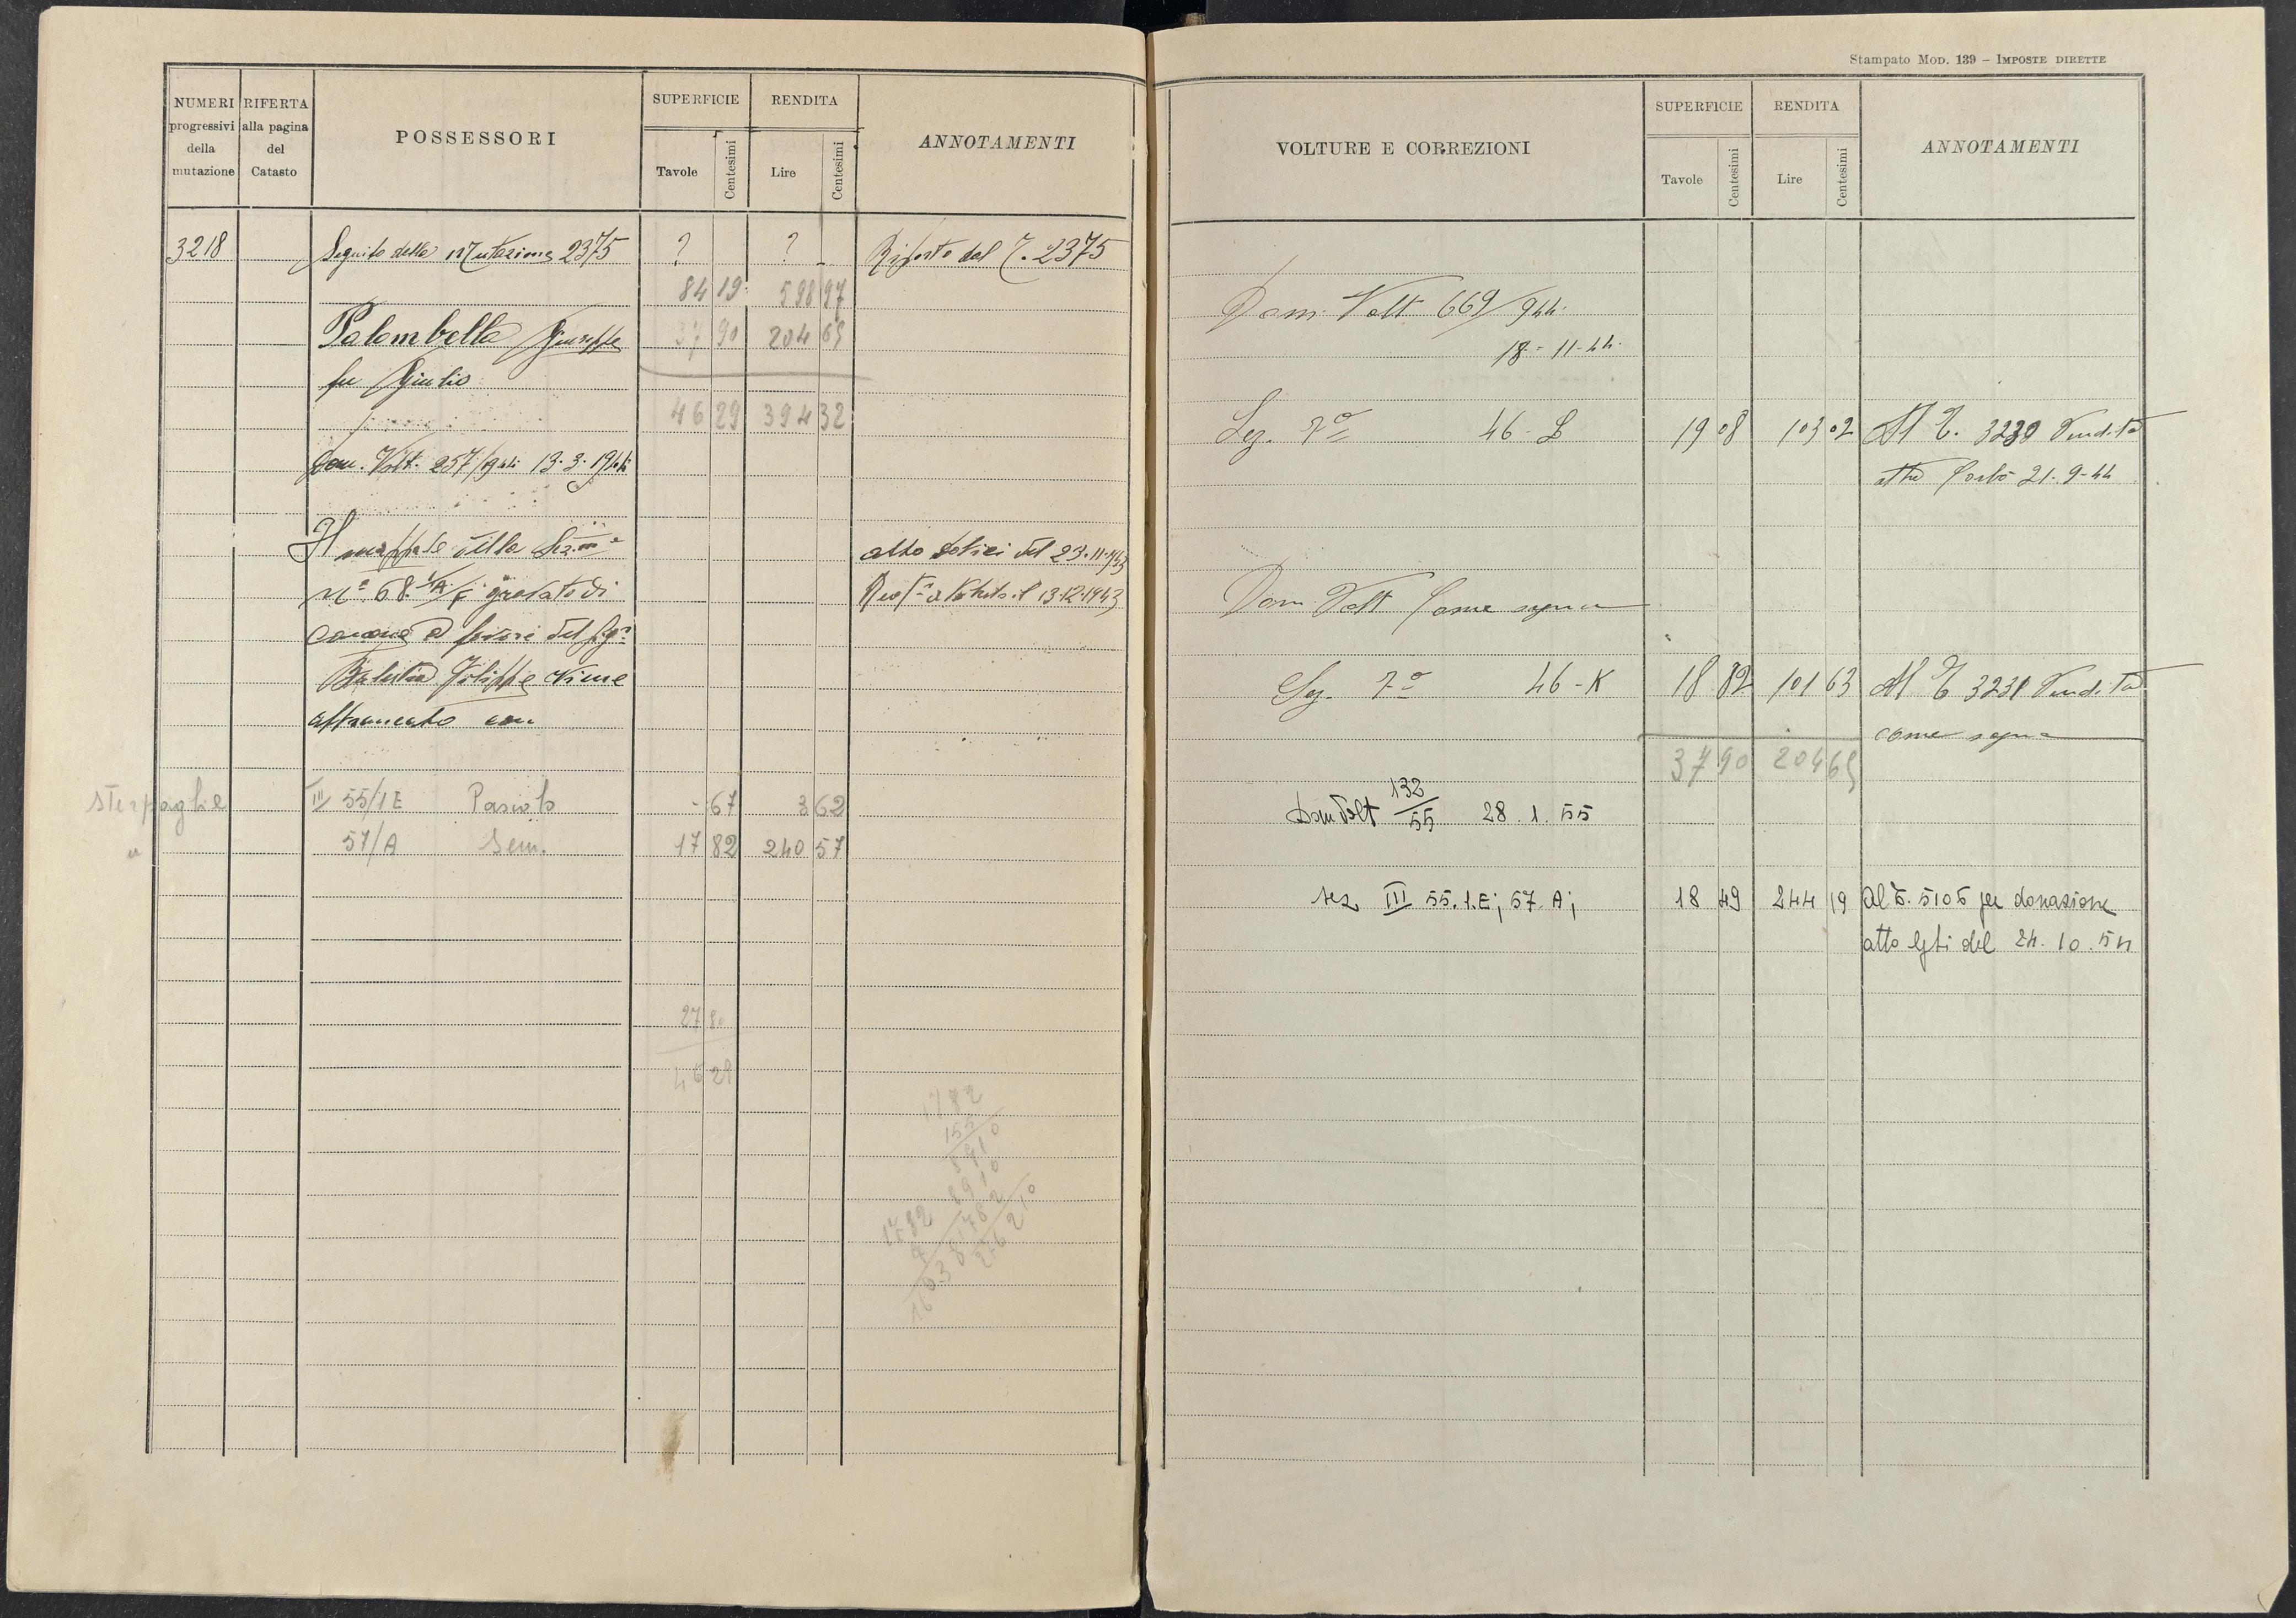 NUMERI progressivi della mutazione
RIFERTA alla pagina del Catasto
POSSESSORI
SUPERFICIE
Tavole
Centesimi
RENDITA
Lire
Centesimi
ANNOTAMENTI
3218 Seguito della Mutazione 2375 ? ? Riporto dal T. 2375
84 19 598 97
Palombella Giuseppe 37 90 204 65
fu Giulio
46 29 394 32
Dom. Volt. 257/944 13.3.1944
Il mappale della Sez.
n° 68 gravato di
canone a favore del Sig.
Filippe
affrancato con
atto del 23.11.943
13.12.1943
Sterpaglie III 55/1E Pascolo -67 3 62
" 57/A Sem. 17 82 240 57
27 80
46 29
1782
155
8910
8910
1782
276210
1782
9
16038
Stampato Mod. 139 - IMPOSTE DIRETTE
VOLTURE E CORREZIONI
SUPERFICIE
Tavole
Centesimi
RENDITA
Lire
Centesimi
ANNOTAMENTI
Dom. Volt 669/944
18-11-44
Sez. 7° 46-L 19 08 103 02 Al T. 3230 Vendita
atto 21.9-44
Dom Volt Come sopra
Sez. 7° 46-K 18 82 101 63 Al T 3231 Vendita
come sopra
37 90 204 65
Dom Volt 132/55 28.1.55
sez III 55.1.E; 57.A; 18 49 244 19 Al T. 5105 per donazione
atto del 24.10.54